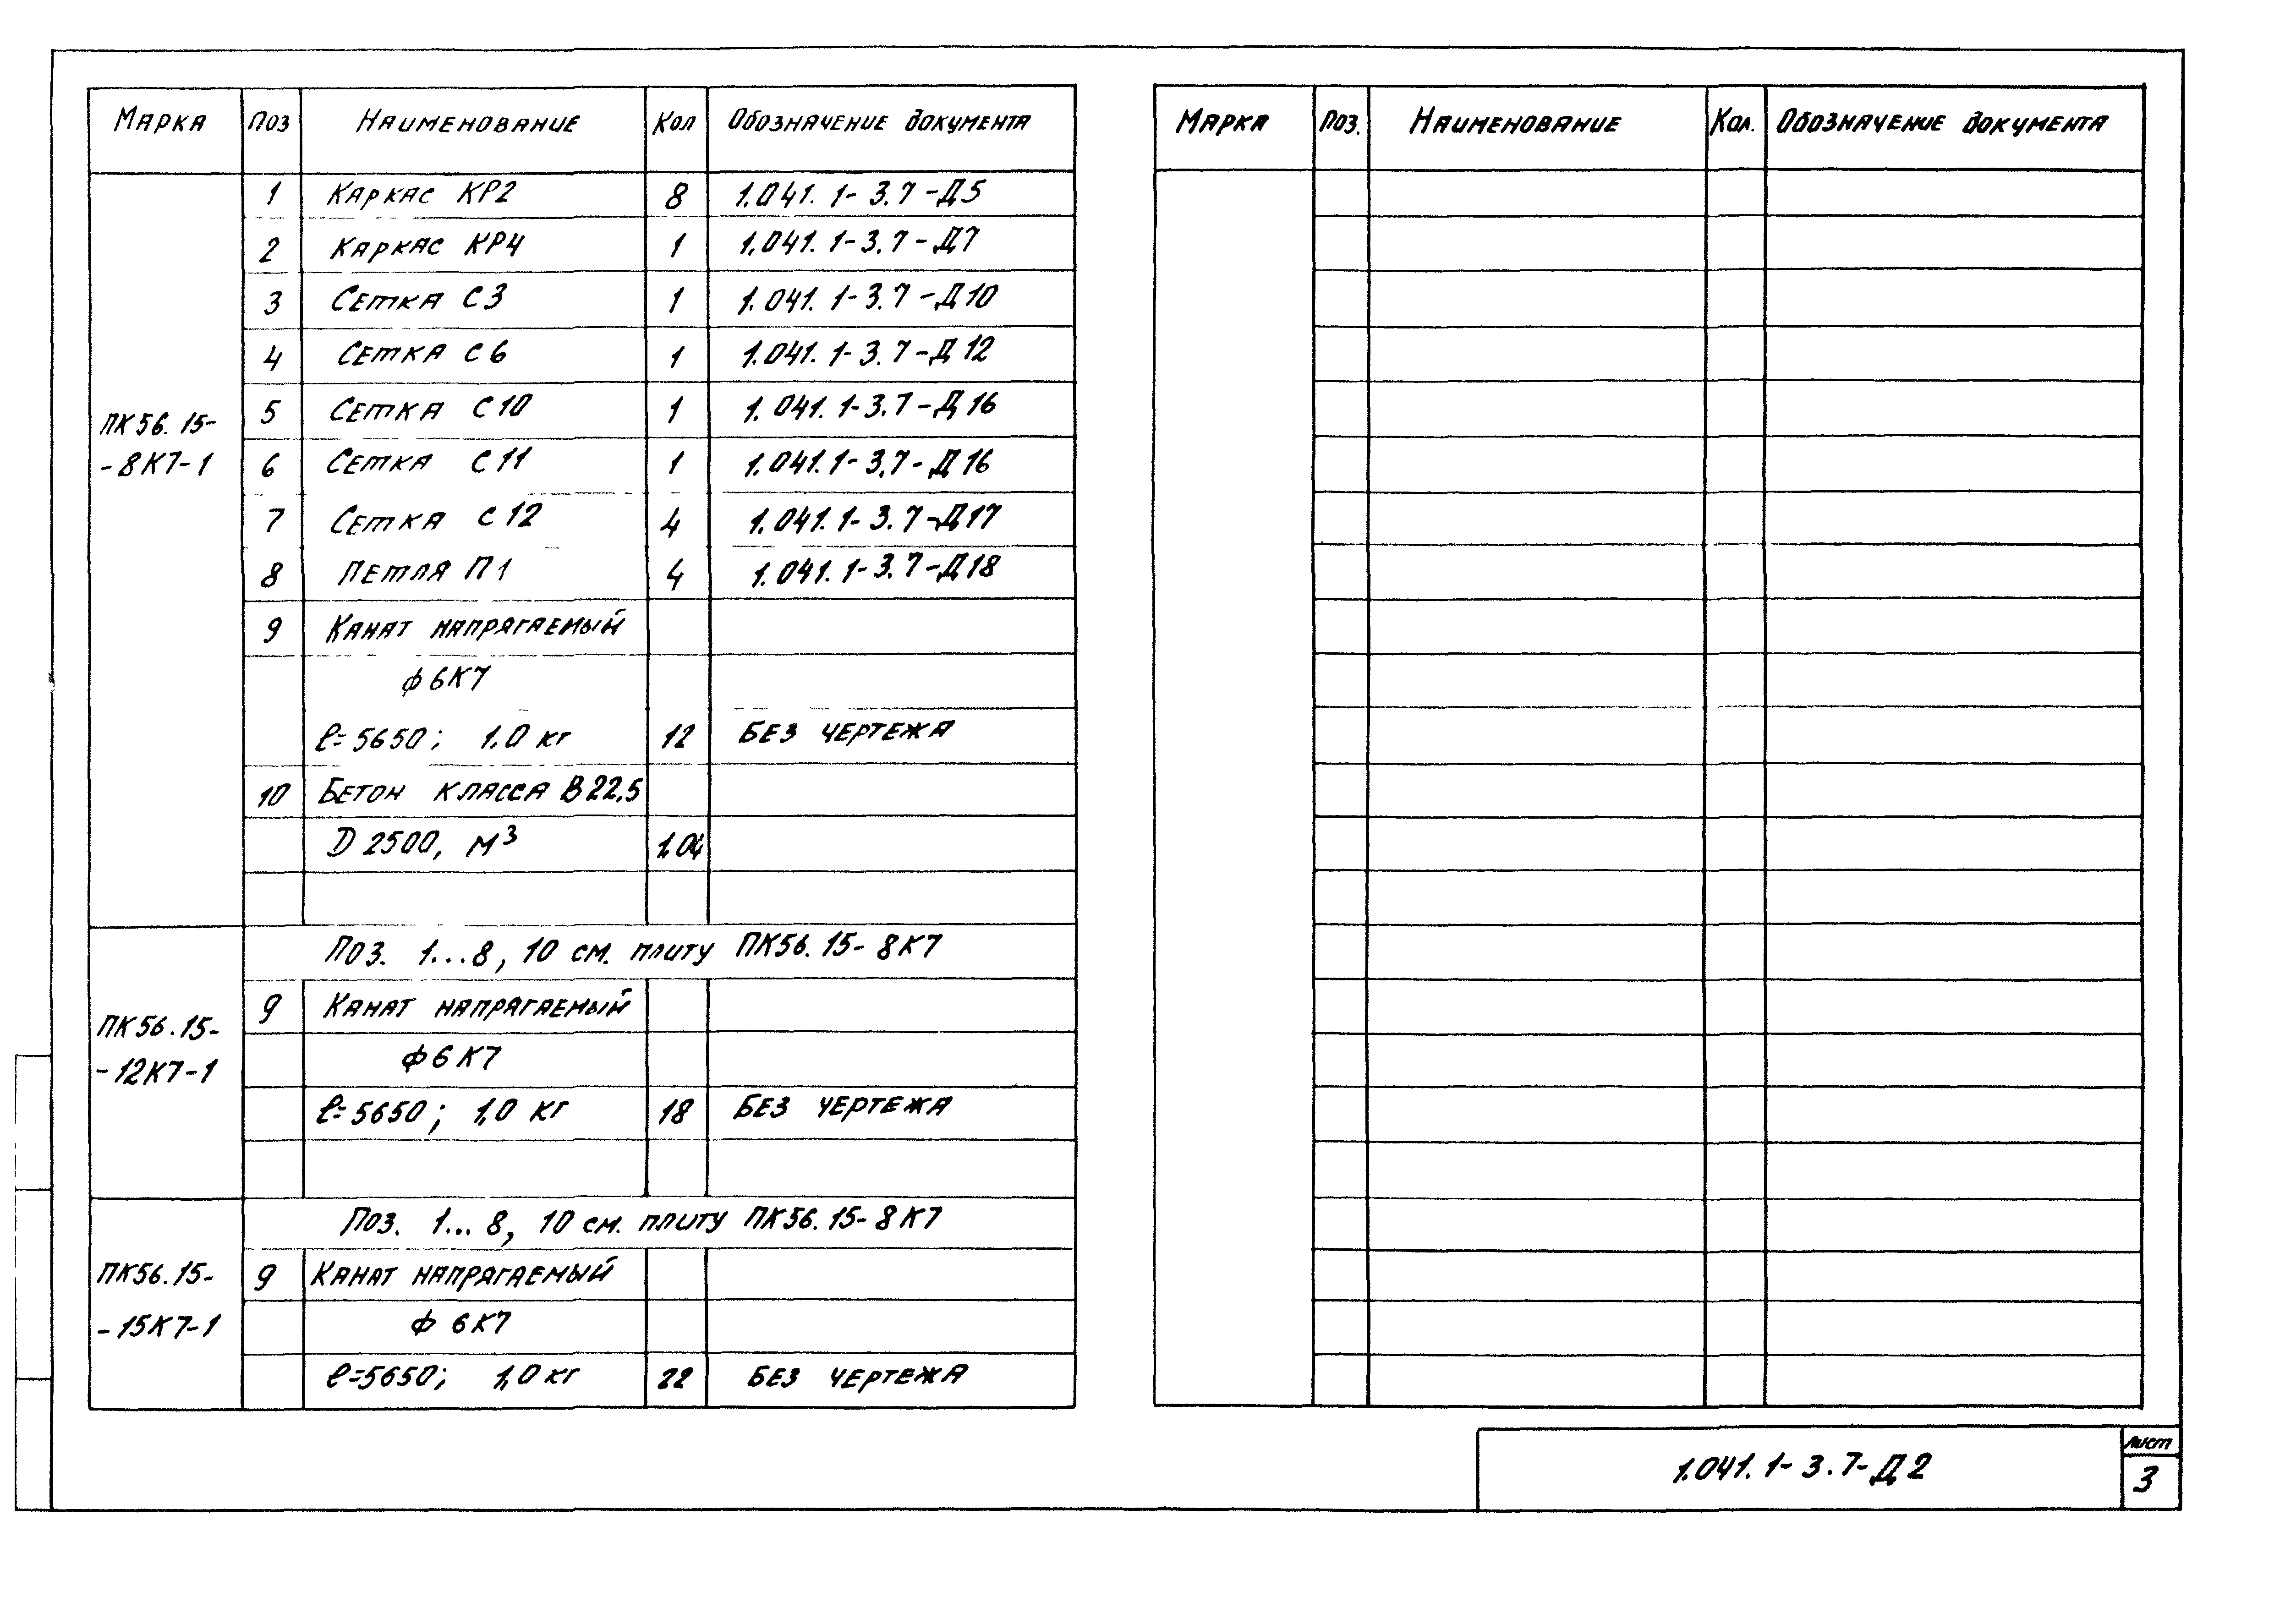 Марка Поз Наименование Кол Обозначение документа
1 Каркас КР2 8 1.041.1-3.7-Д5
2 Каркас КР4 1 1.041.1-3.7-Д7
3 Сетка С3 1 1.041.1-3.7-Д10
4 Сетка С6 1 1.041.1-3.7-Д12
ПК56.15-
-8К7-1
5 Сетка С10 1 1.041.1-3.7-Д16
6 Сетка С11 1 1.041.1-3.7-Д16
7 Сетка С12 4 1.041.1-3.7-Д17
8 Петля П1 4 1.041.1-3.7-Д18
9 Канат напрягаемый
ф6К7
ℓ=5650; 1.0 кг 12 Без чертежа
10 Бетон класса В22,5
D 2500, м³ 1.04
Поз. 1...8, 10 см. плиту ПК56.15-8К7
ПК56.15-
-12К7-1
9 Канат напрягаемый
ф6К7
ℓ=5650; 1,0 кг 18 Без чертежа
Поз. 1...8, 10 см. плиту ПК56.15-8К7
ПК56.15-
-15К7-1
9 Канат напрягаемый
ф 6К7
ℓ=5650; 1,0 кг 22 Без чертежа
Марка Поз. Наименование Кол. Обозначение документа
1.041.1-3.7-Д2
Лист
3